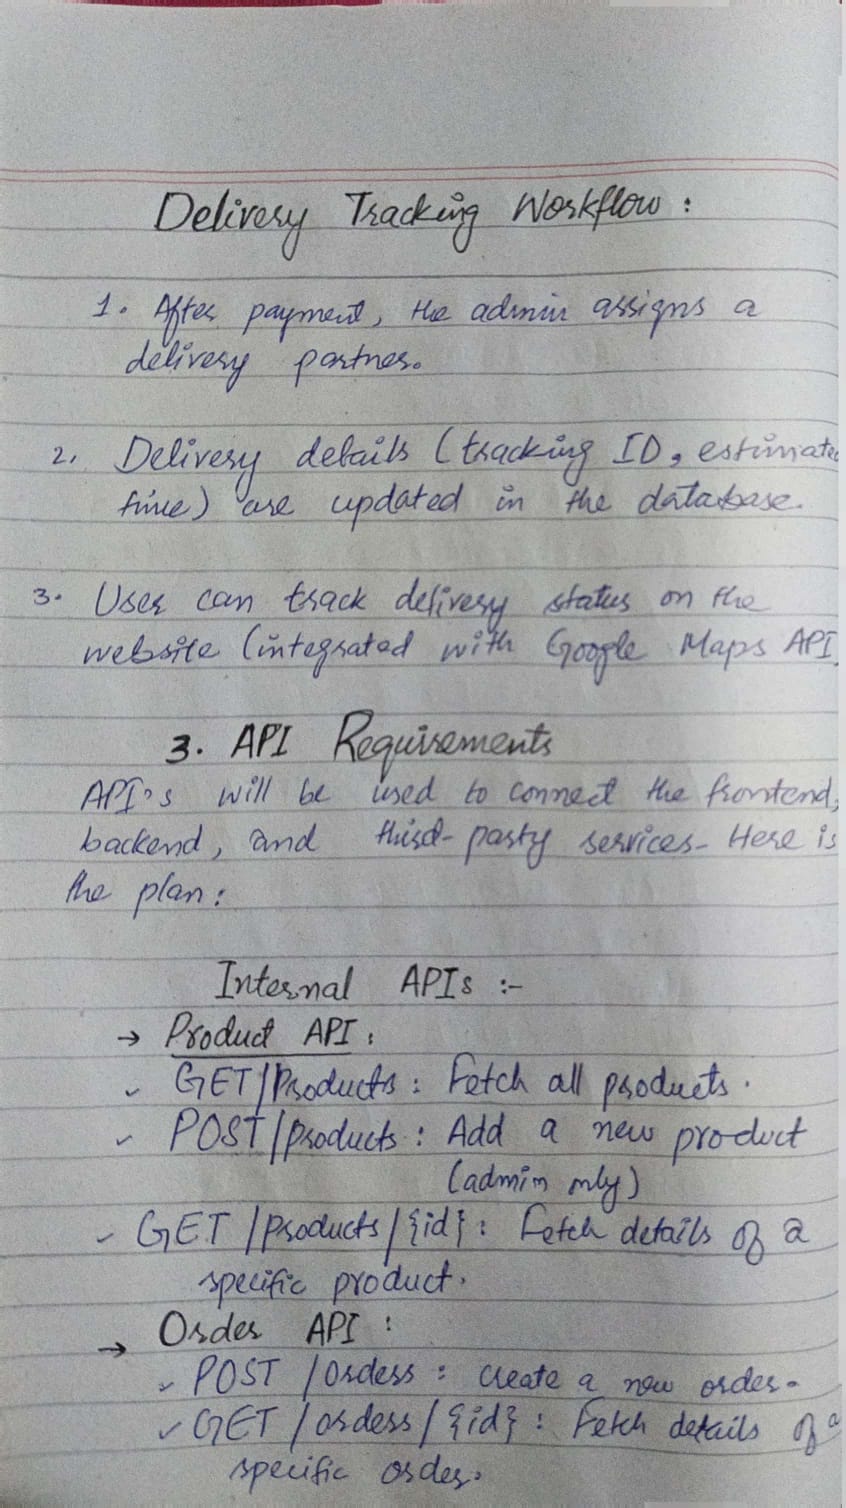 Delivery Tracking Workflow :
1. After payment, the admin assigns a
delivery partner.
2. Delivery details (tracking ID, estimated
time) are updated in the database.
3. User can track delivery status on the
website (integrated with Google Maps API
3. API Requirements
API's will be used to connect the frontend,
backend, and third-party services. Here is
the plan :
Internal APIs :-
→ Product API :
✓ GET/Products : Fetch all products.
✓ POST/products : Add a new product
(admin only)
✓ GET /products/{id} : Fetch details of a
specific product.
→ Order API :
✓ POST /Orders : Create a new order.
✓ GET /orders/{id} : Fetch details of a
specific order.